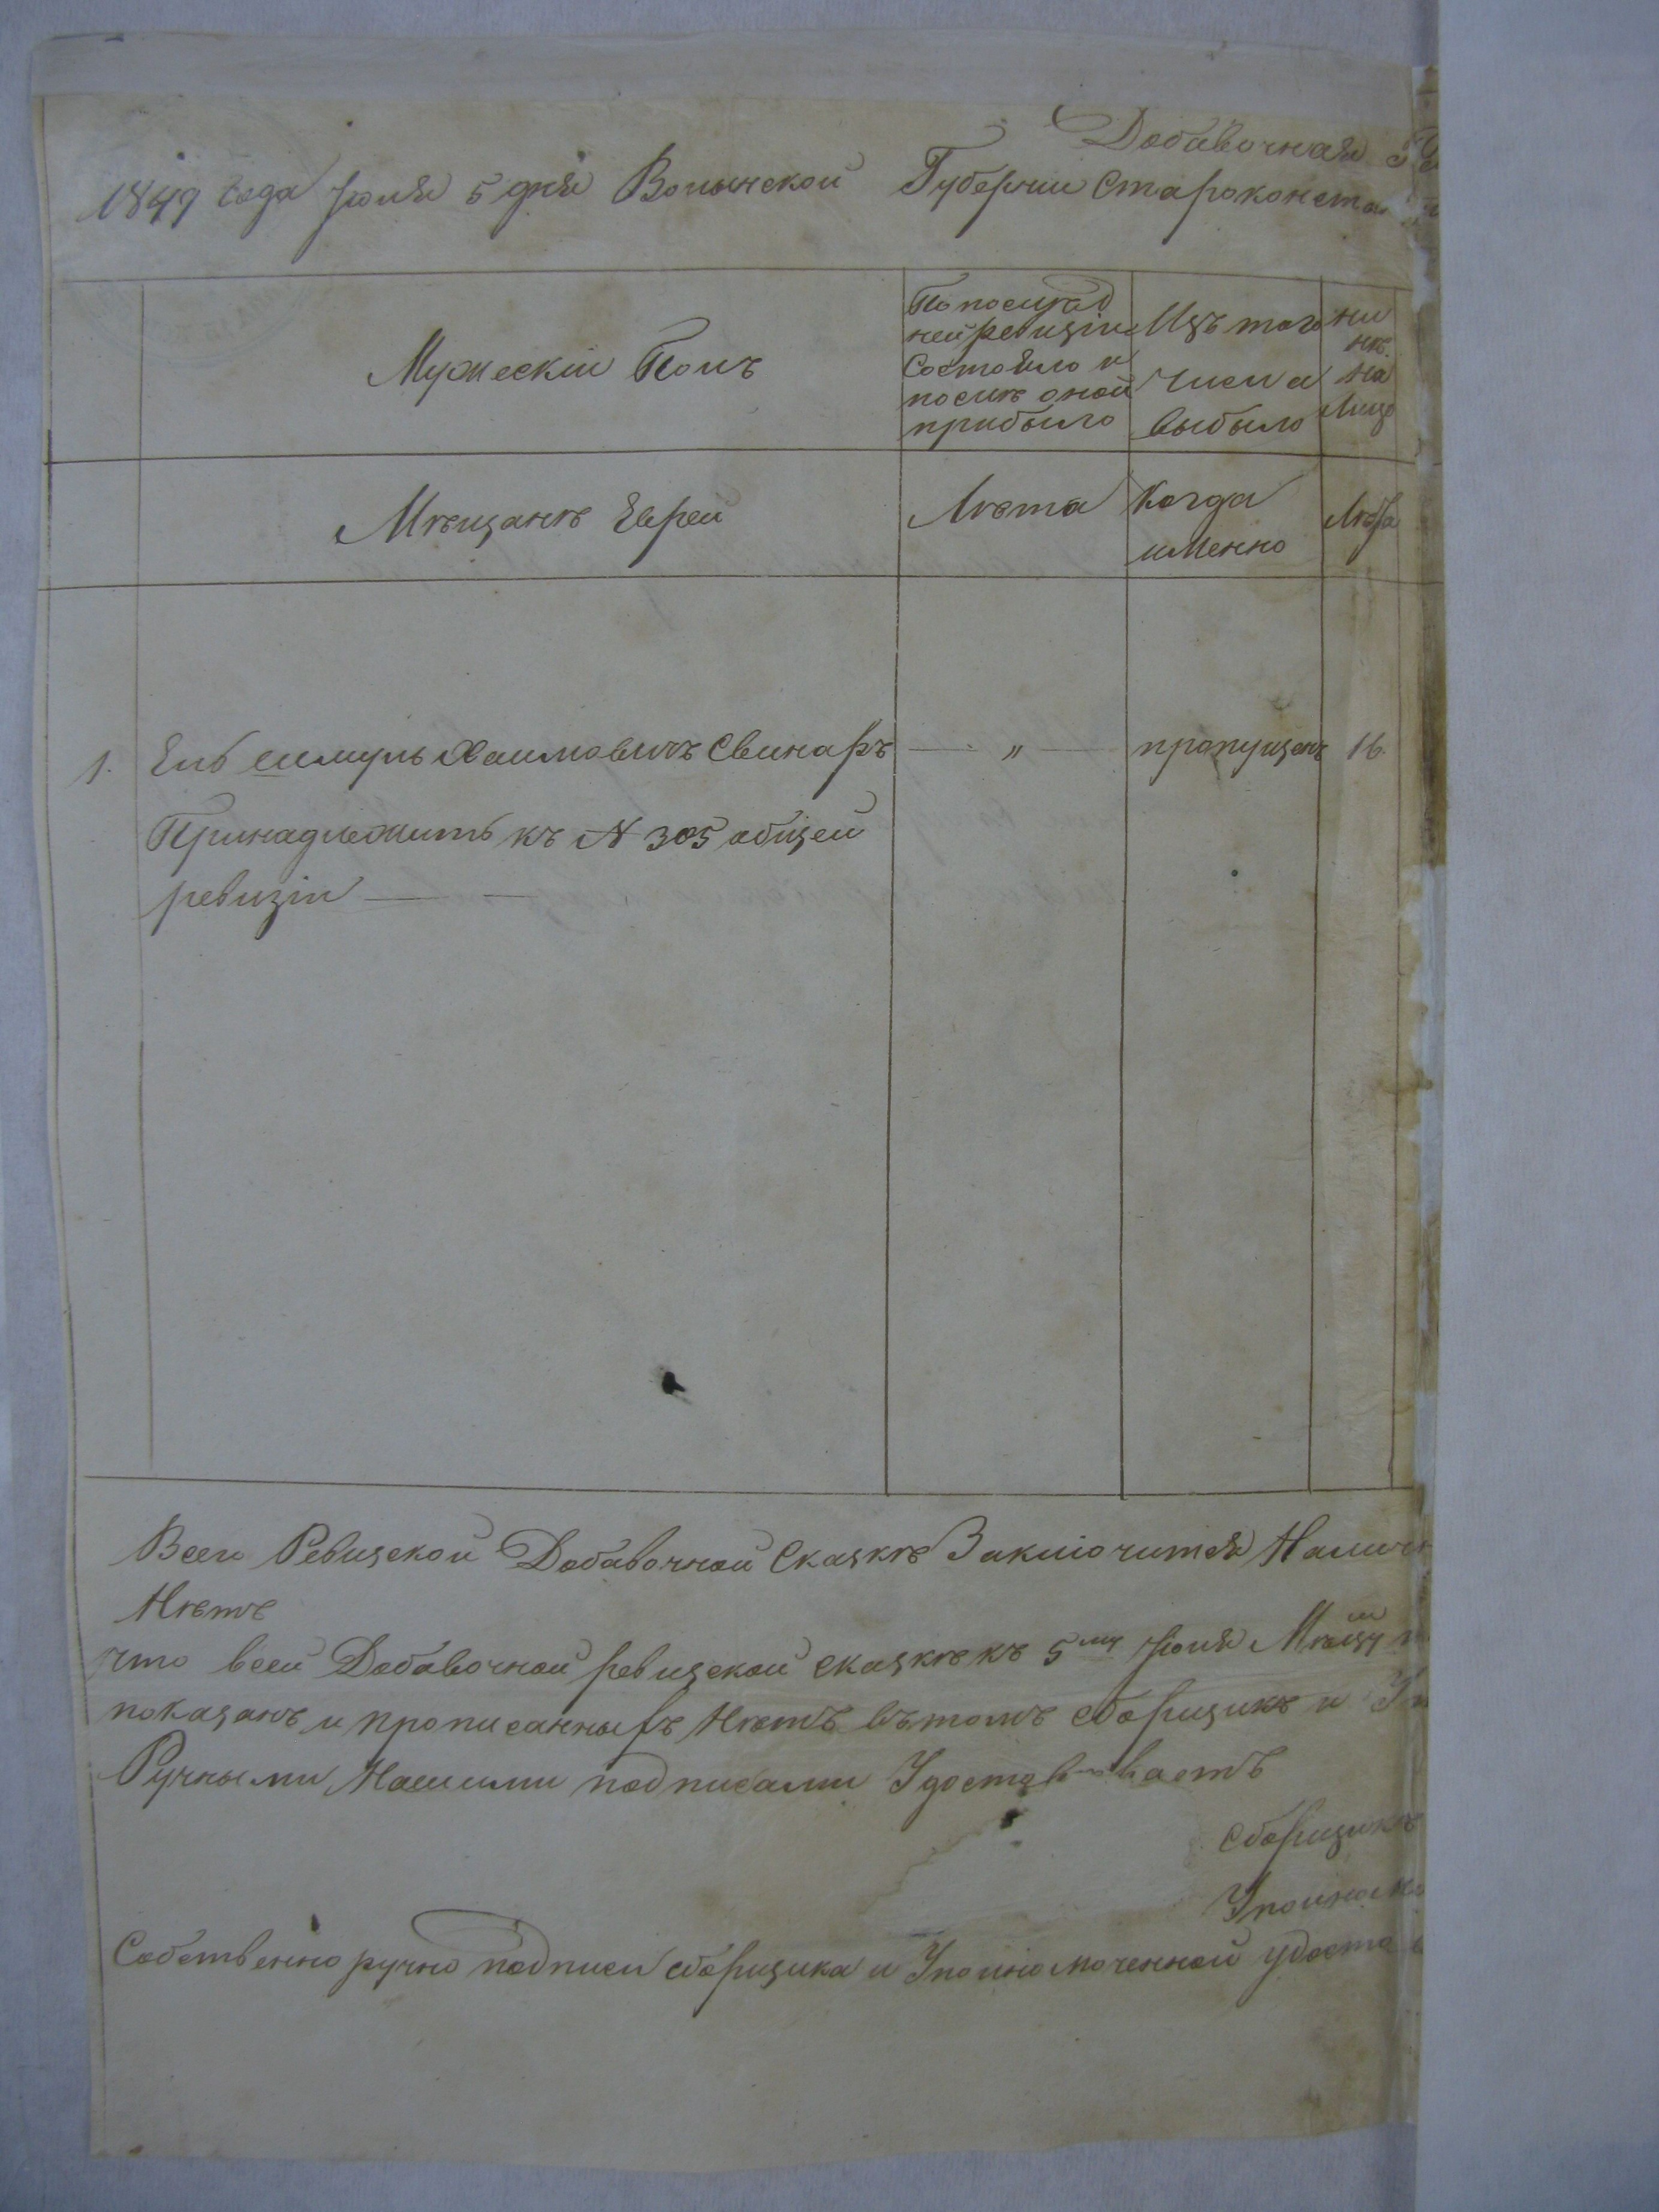 Добавочная
1849 года Июля 5 дня Волынской Губернии Староконста
Мужескій Полъ
По послѣд
ней ревизіи
состояло и
послѣ оной
прибыло
Изъ того
числа
выбыло
Ны
нѣ
на
лицо
Мѣщанъ Евреи
Лѣта
Когда
именно
Лѣта
1.
Ель Шмуль Хаимовичъ Свинаръ
—— „ ——
пропущенъ
16.
Принадлежитъ къ N 305 общей
ревизіи ——
Всего Ревизской Добавочной Сказкѣ Заключится Налич
Нѣтъ
что всей Добавочной ревизской сказкѣ къ 5му Июля
показанъ и прописанныхъ Нѣтъ вътомъ сборщикъ и
Ручными Нашими подписами
Сборщикъ
Уполномо
Собственно ручно подписи сборщика и Уполномоченной удосто